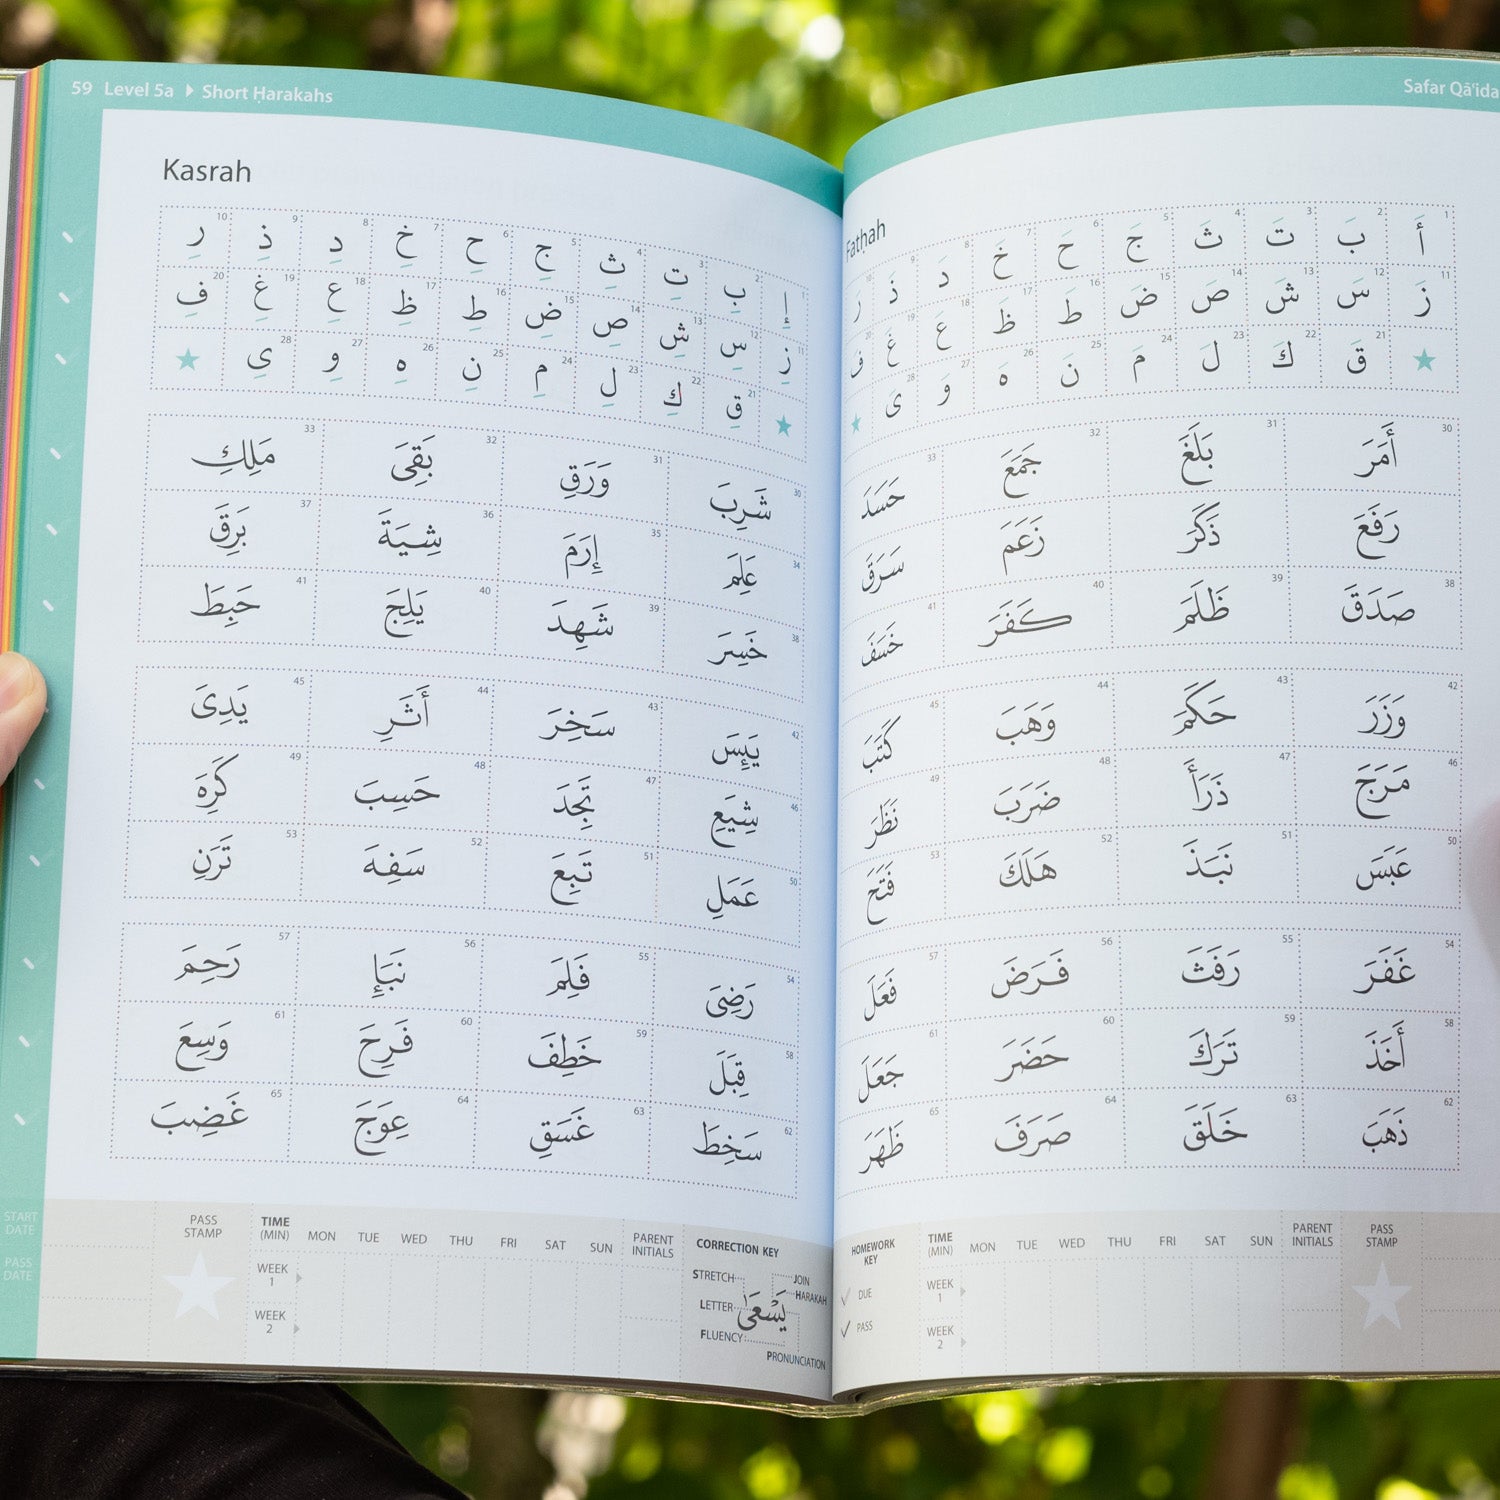 Safar Qāʿida
Fatḥah
1 أَ 2 بَ 3 تَ 4 ثَ 5 جَ 6 حَ 7 خَ 8 دَ 9 ذَ 10 رَ
11 زَ 12 سَ 13 شَ 14 صَ 15 ضَ 16 طَ 17 ظَ 18 عَ 19 غَ 20 فَ
21 قَ 22 كَ 23 لَ 24 مَ 25 نَ 26 هَ 27 وَ 28 ىَ
30 أَمَرَ 31 بَلَغَ 32 جَمَعَ 33 حَسَدَ
رَفَعَ ذَكَرَ زَعَمَ سَرَقَ
38 صَدَقَ 39 ظَلَمَ 40 كَفَرَ 41 خَسَفَ
42 وَزَرَ 43 حَكَمَ 44 وَهَبَ 45 كَتَبَ
46 مَرَجَ 47 ذَرَأَ 48 ضَرَبَ 49 نَظَرَ
50 عَبَسَ 51 نَبَذَ 52 هَلَكَ 53 فَتَحَ
54 غَفَرَ 55 رَفَثَ 56 فَرَضَ 57 فَعَلَ
58 أَخَذَ 59 تَرَكَ 60 حَضَرَ 61 جَعَلَ
62 ذَهَبَ 63 خَلَقَ 64 صَرَفَ 65 ظَهَرَ
HOMEWORK KEY
DUE
PASS
TIME (MIN) MON TUE WED THU FRI SAT SUN PARENT INITIALS PASS STAMP
WEEK 1
WEEK 2
59 Level 5a Short Ḥarakahs
Kasrah
1 إِ 2 بِ 3 تِ 4 ثِ 5 جِ 6 حِ 7 خِ 8 دِ 9 ذِ 10 رِ
11 زِ 12 سِ 13 شِ 14 صِ 15 ضِ 16 طِ 17 ظِ 18 عِ 19 غِ 20 فِ
21 قِ 22 كِ 23 لِ 24 مِ 25 نِ 26 هِ 27 وِ 28 ىِ
30 شَرِبَ 31 وَرَقِ 32 بَقِىَ 33 مَلِكِ
34 عَلِمَ 35 إِرَمَ 36 شِيَةَ 37 بَرِقَ
38 خَسِرَ 39 شَهِدَ 40 يَلِجَ 41 حَبِطَ
42 يَئِسَ 43 سَخِرَ 44 أَثَرِ 45 يَدِىَ
46 شِيَعِ 47 تَجِدَ 48 حَسِبَ 49 كَرِهَ
50 عَمَلِ 51 تَبِعَ 52 سَفِهَ 53 تَرَنِ
54 رَضِىَ 55 فَلِمَ 56 نَبَإِ 57 رَحِمَ
58 قِبَلَ 59 خَطِفَ 60 فَرِحَ 61 وَسِعَ
62 سَخِطَ 63 غَسَقِ 64 عِوَجَ 65 غَضِبَ
START DATE
PASS DATE
PASS STAMP TIME (MIN) MON TUE WED THU FRI SAT SUN PARENT INITIALS
WEEK 1
WEEK 2
CORRECTION KEY
STRETCH
JOIN
HARAKAH
LETTER
يَسْعَىٰ
FLUENCY
PRONUNCIATION